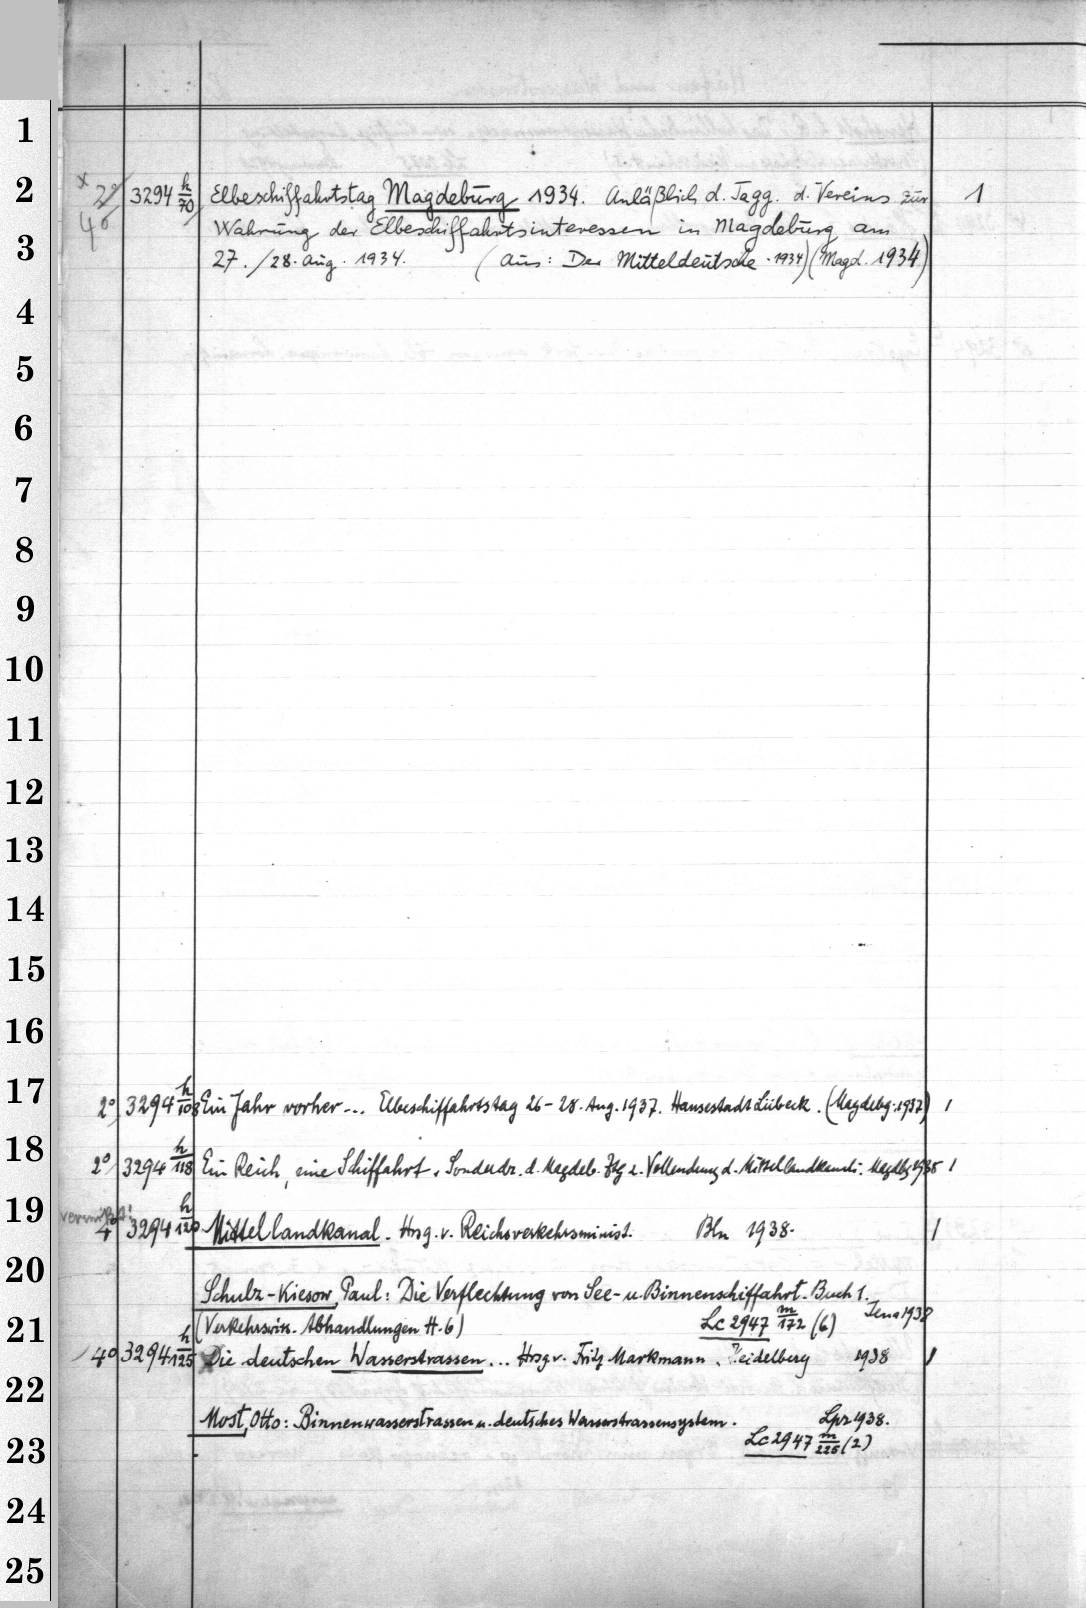 1
2
x 2° 3294 h/70 Elbeschiffahrtstag Magdeburg 1934. Anläßlich d. Tagg. d. Vereins zur 1
4° Wahrung der Elbeschiffahrtsinteressen in Magdeburg am
3
27./28. Aug. 1934. (Aus: Der Mitteldeutsche. 1934) (Magd. 1934)
4
5
6
7
8
9
10
11
12
13
14
15
16
17
2° 3294 h/108 Ein Jahr vorher... Elbeschiffahrtstag 26-28. Aug. 1937. Hansestadt Lübeck. (Magdebg. 1937) 1
18
2° 3294 h/118 Ein Reich, eine Schiffahrt. Sonderdr. d. Magdeb. Ztg z. Vollendung d. Mittellandkanals. Magdbg 1938 1
19
vermißt!
4° 3294 h/120 Mittellandkanal. Hrsg. v. Reichsverkehrsminist. Bln 1938. 1
20
Schulz-Kiesow, Paul: Die Verflechtung von See- u. Binnenschiffahrt. Buch 1.
Jena 1938
21
(Verkehrswiss. Abhandlungen H. 6) Lc 2947 m/172 (6)
4° 3294 h/125 Die deutschen Wasserstrassen... Hrsg v. Fritz Markmann. Heidelberg 1938 1
22
Most, Otto: Binnenwasserstrassen u. deutsches Wasserstrassensystem. Lpz 1938.
23
Lc 2947 m/225 (2)
24
25